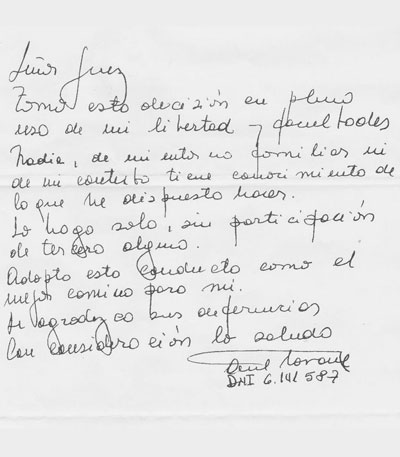 Señor Juez
Tomo esta decisión en pleno
uso de mi libertad y facultades
Nadie, de mi entorno familiar ni
de mi contexto tiene conocimiento de
lo que he dispuesto hacer.
Lo hago solo, sin participación
de tercero alguno.
Adopto esta conducta como el
mejor camino para mi.
Le agradezco sus
Con consideración lo saludo
DNI 6.141587